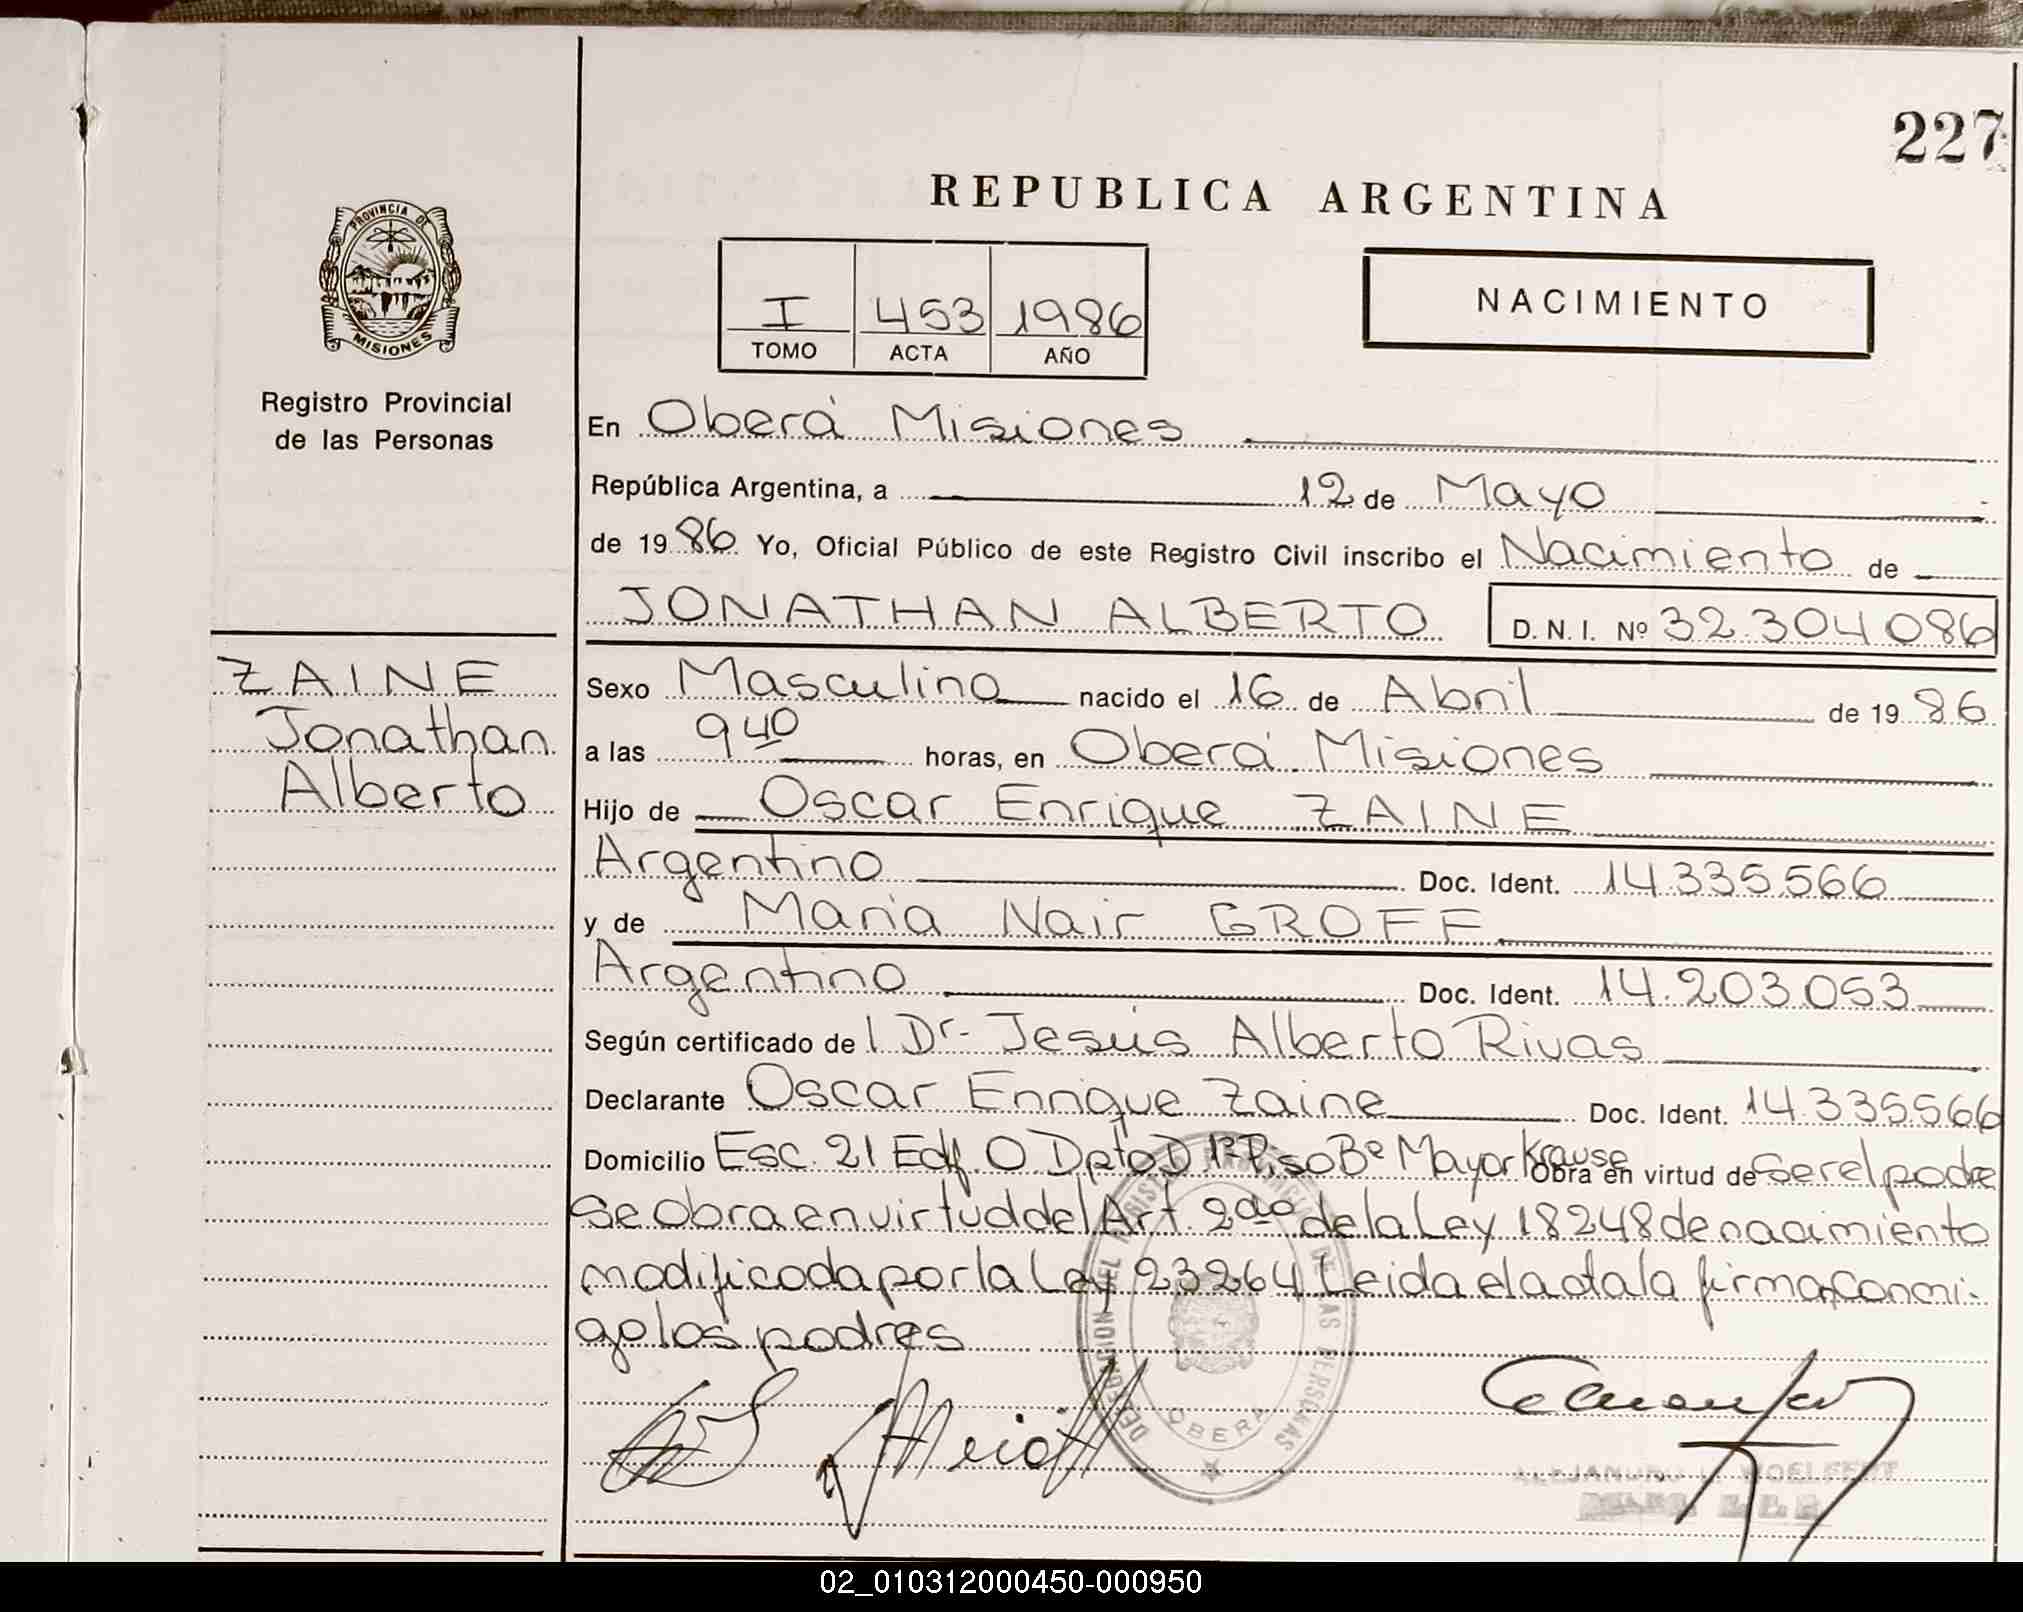 227
REPUBLICA ARGENTINA
PROVINCIA DE
MISIONES
Registro Provincial
de las Personas
I 453 1986
TOMO ACTA AÑO
NACIMIENTO
En Oberá Misiones
República Argentina, a 12 de Mayo
de 1986 Yo, Oficial Público de este Registro Civil inscribo el Nacimiento de
JONATHAN ALBERTO D.N.I. Nº 32.304086
ZAINE
Jonathan
Alberto
Sexo Masculino nacido el 16 de Abril de 1986
a las 9 40 horas, en Oberá Misiones
Hijo de Oscar Enrique ZAINE
Argentino Doc. Ident. 14.335.566
y de Maria Nair GROFF
Argentino Doc. Ident. 14.203.053
Según certificado de l Dr. Jesús Alberto Rivas
Declarante Oscar Enrique Zaine Doc. Ident. 14.335.566
Domicilio Esc. 21 Edf. O Dpto D 1º Piso Bº Mayor Krause Obra en virtud de ser el padre
Se obra en virtud del Art. 2do de la Ley 18248 de nacimiento
modificada por la Ley 23264 Leida el acta la firman conmi-
go los padres
DELEGACION DEL REGISTRO PROVINCIAL DE LAS PERSONAS
OBERA
ALEJANDRO WOELFERT
02_010312000450-000950